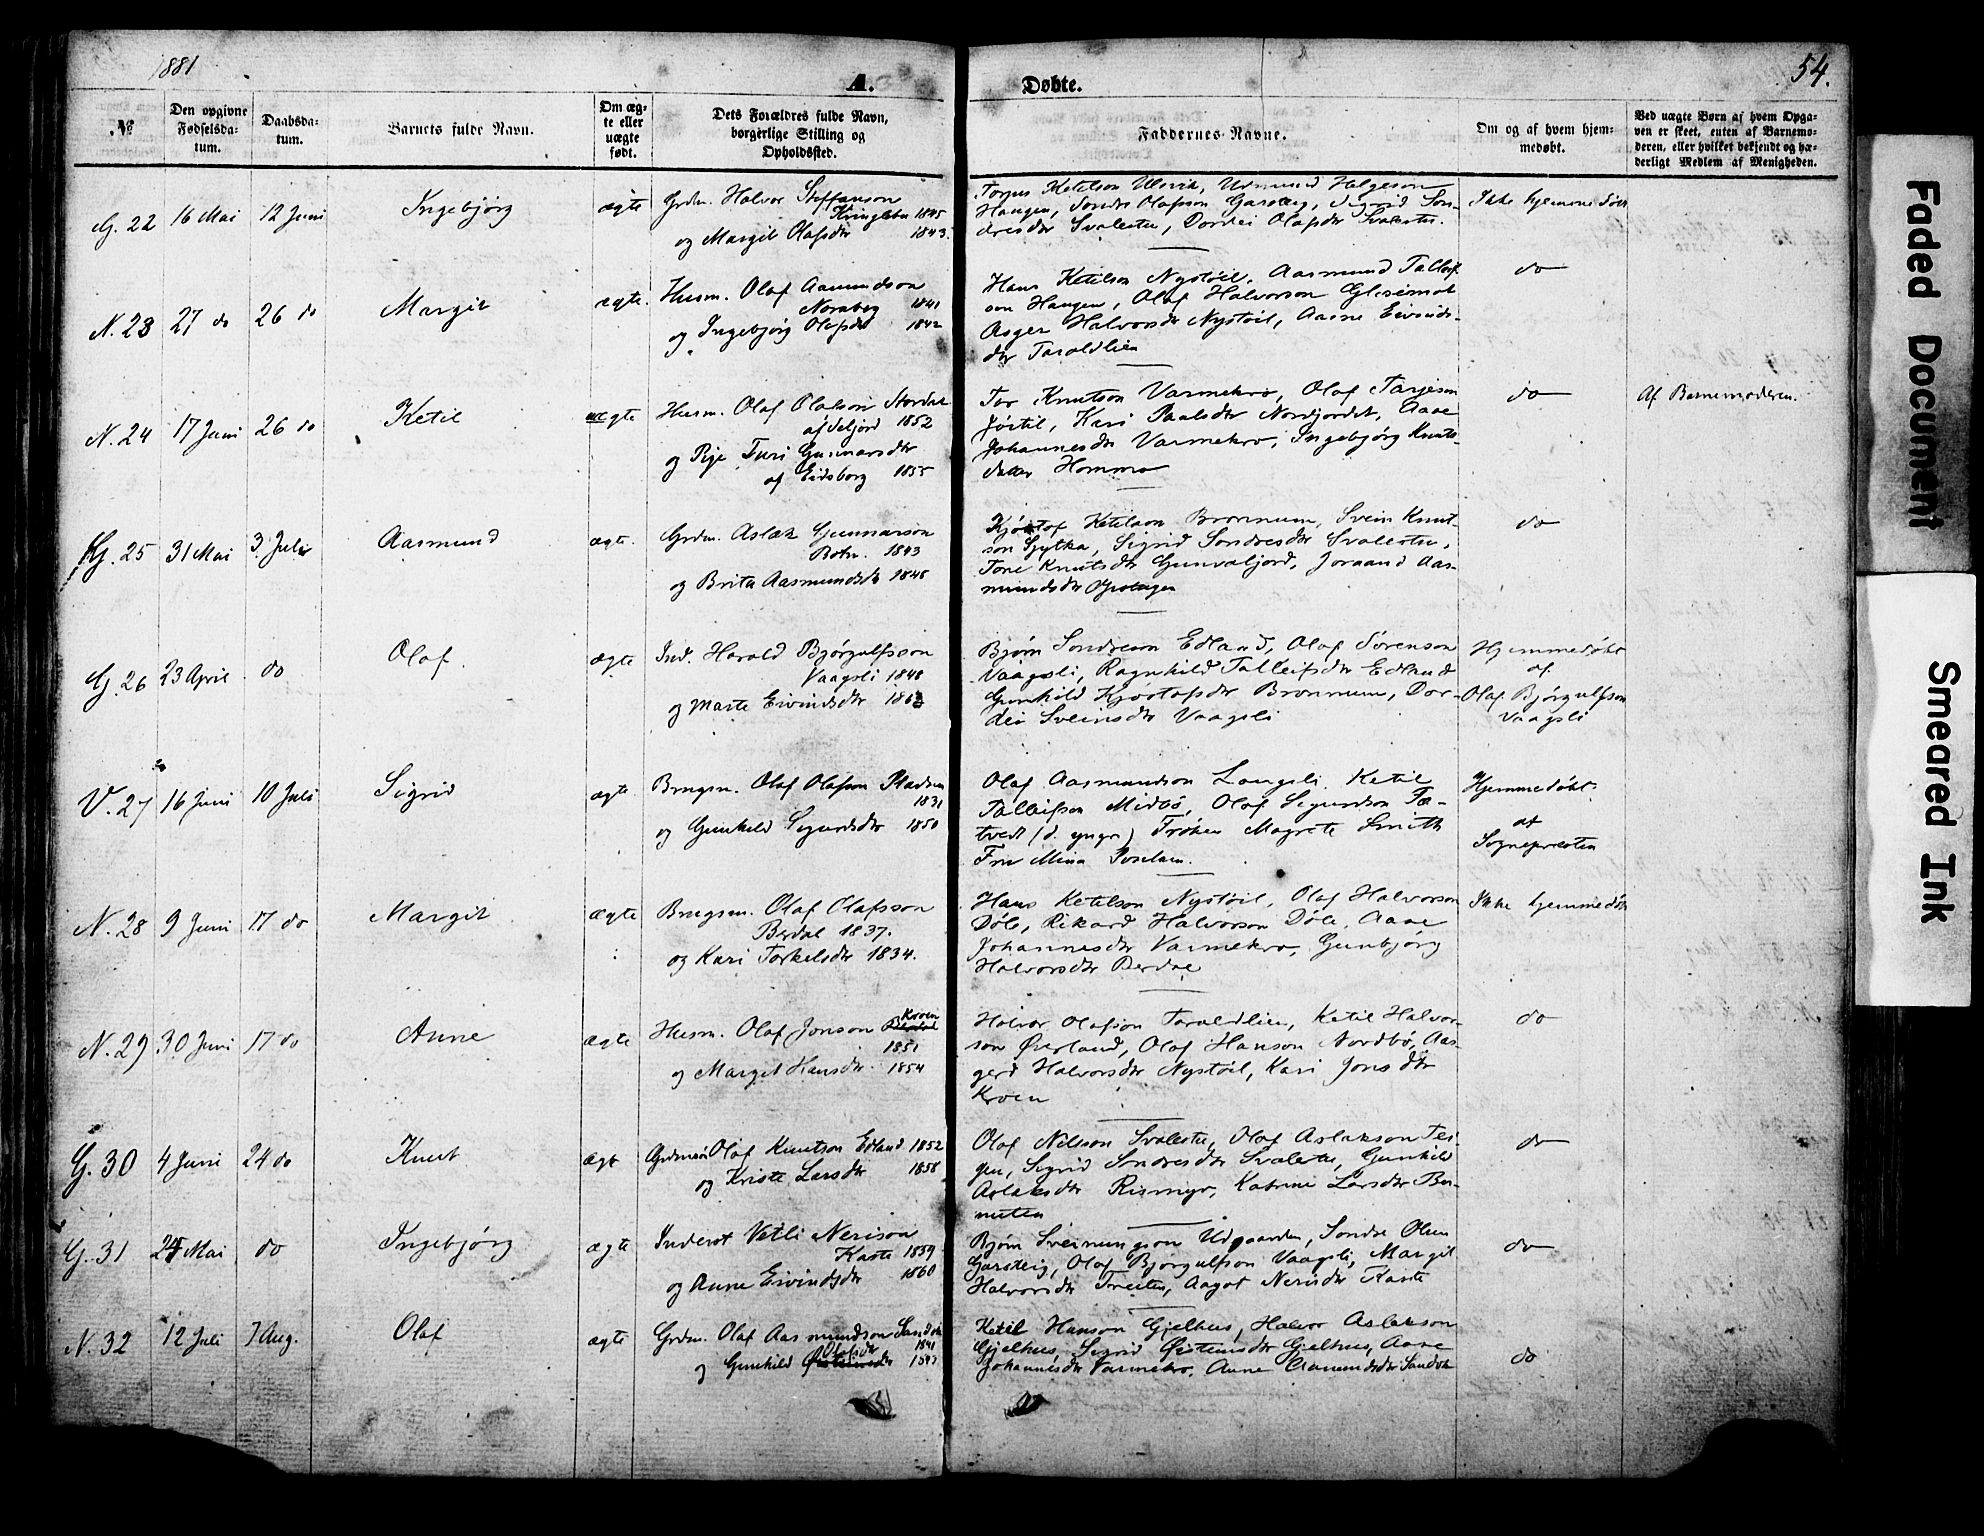 1881
A.
Døbte.
54.
№
Den opgivne Fødselsda-tum.
Daabsda-tum.
Barnets fulde Navn.
Om æg-te eller uægte født.
Dets Forældres fulde Navn, borgerlige Stilling og Opholdssted.
Faddernes Navne.
Om og af hvem hjem-medøbt.
Ved uægte Børn af hvem Opga-ven er skeet, enten af Barnemo-deren, eller hvilket bekjendt og hæ-derligt Medlem af Menigheden.
G. 22 16 Mai 12 Juni Ingebjørg ægte Grdm. Halvor Steffanson
1845
og Margit Olafsdtr 1843.
Ketilson Ulevik, Helgeson
Haugen, Sondre Olafson Garsteig, Sigrid Son-
dresdtr Svalestu, Dordei Olafsdtr Svalestu.
Ikke hjemmedøbt
N. 23 27 do 26 do Margit ægte. Husm. Olaf Aamundson
Noraberg 1841
og Ingebjørg Olafsdtr 1842
Hans Ketilson Nystöil, Aasmund Talleif
son Haugen, Olaf Halvorson
Asger Halvorsdtr Nystöil, Aasne Eivinds-
dtr Taraldlien
do
N. 24 17 Juni 26 do Ketil uægte Husm. Olaf Olafson Stordal
af Seljord 1852
og Pige Turi Gunnarsdtr
af Eidsborg 1855
Tor Knutson Varmekro, Olaf Tarjeson
Jortil, Kari Paalsdtr Nordjordet, Aase
Johannesdtr Varmekro, Ingebjørg Knuts-
datter Hommo
do
Af Barnemoderen.
G. 25 31 Mai 3. Juli Aasmund ægte. Grdm. Aslak Gunnarson
Botn. 1843
og Brita Aasmundsdtr 1848
Kjøstof Ketilson Bronnum, Svein Knut-
son Sytka, Sigrid Sondresdtr Svalestu,
Tone Knutsdtr Gunvaljord, Joraand Aas-
mundsdtr
do
G. 26 23 April do Olaf. ægte Ind. Harald Bjørgulfsson
Vaagsli 1848
og Marte Eivindsdtr
Bjørn Sondreson Edland, Olaf Sørenson
Vaagsli, Ragnhild Talleifsdtr Edland
Gunhild Kjøstofsdtr Bronnum, Dor-
dei Sveinsdtr Vaagsli
Hjemmedøbt
af
Olaf Bjørgulfson
Vaagsli
V. 27 16 Juni 10 Juli Sigrid ægte. Brugsm. Olaf Olafson Pladsen
1831
og Gunhild Sigurdsdtr 1850
Olaf Aasmundson Langsli, Ketil
Talleifson Midbö, Olaf Sigurdson Tve-
tvedt (d. yngr) Frøken Magrete Smith
Fru Mina
Hjemmedøbt
af
Sognepresten
N. 28 9 Juni 17 do Margit ægte Brugsm. Olaf Olafsson
Berdal 1837.
og Kari Torkelsdtr 1834.
Hans Ketelson Nystöil, Olaf Halvorson
Døle, Rikard Halvorson Døle, Aase
Johannesdtr Varmekro, Gunbjørg
Halvorsdtr Berdal
Ikke hjemmedøbt
N. 29 30 Juni 17 do Anne ægte Husm. Olaf Jonson Kroen
1851
og Margit Hansdtr. 1854
Halvor Olafson Taraldlien, Ketil Halvor-
son Øverland, Olaf Hanson Nordbö, Aas-
gerd Halvorsdtr Nystöil, Kari Jonsdtr
Kroen
do
G. 30 4 Juni 24 do Knut ægt Olaf Knutson Edland 1852
og Kriste Larsdtr 1858
Olaf Nilsson Svalestu, Olaf Aslakson Tei-
gen, Sigrid Sondresdtr Svalestu, Gunhild
Aslaksdtr Rismyr, Katrine Larsdtr Ber-
nuten
do
G. 31 24 Mai do Ingebjørg ægte Inderst Vetli Nerison
Kaste 1859
og Anne Eivindsdtr 1860
Bjørn Sveinungson Udgaarden, Sondre Olson
Garsteig, Olaf Bjørgulfson Vaagsli, Margit
Halvorsdtr Treiten, Aagot Nerisdtr Kaste
do
N. 32 12 Juli 7 Aug. Olaf ægte Grdm. Olaf Aasmundson Sandok
1841
og Gunhild Olafsdtr
Ketil Hanson Gjelhus, Halvor Aslakson
Gjelhus, Sigrid Øisteinsdtr Gjelhus, Aase
Johannesdtr Varmekro, Anne Aamundsdtr Sandok
do
Faded Document
Smeared Ink